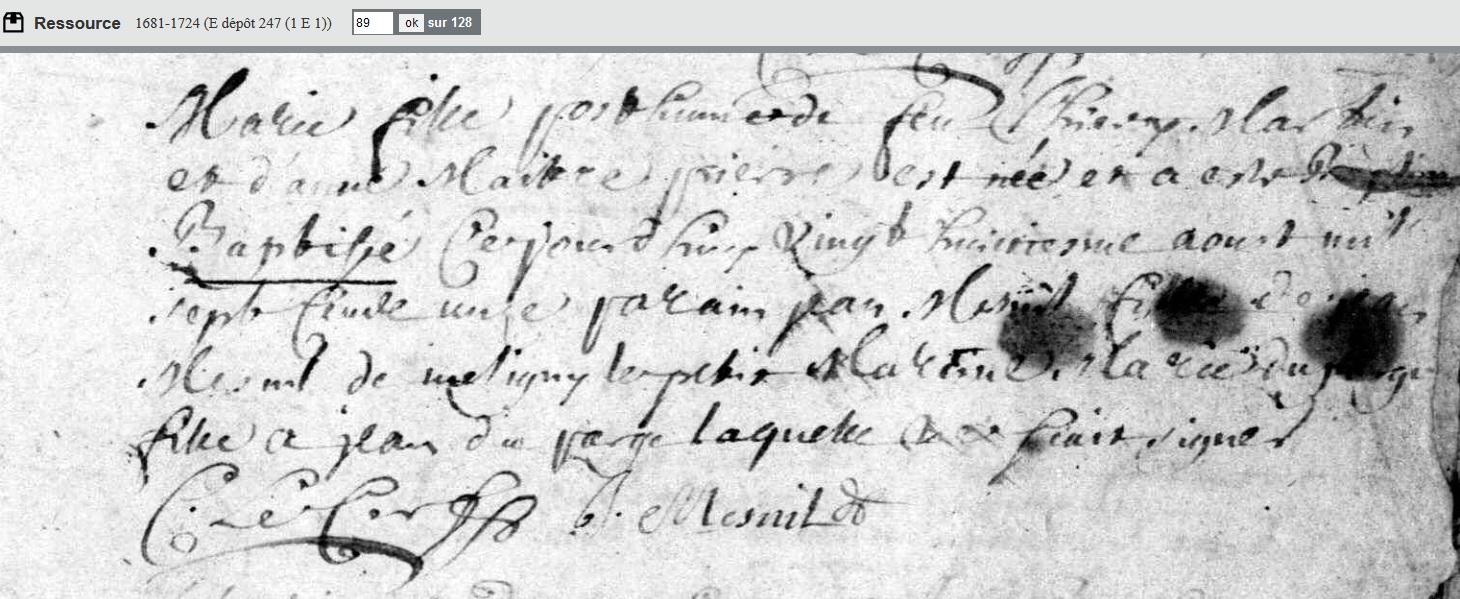 Ressource 1681-1724 (E dépôt 247 (1 E 1)) 89 ok sur 128
Marie fille posthume de feu Thierry Martin
et d'anne Maitre pierre est née et a esté
Baptisé Cejourdhuy Vingt huictiesme aoust mil
sept cent une parain jean Mesnil fils de jean
Mesnil de meligny le petit Maraine Marie du
fille a jean du parge laquelle signer
C. Le Cerf J. Mesnil